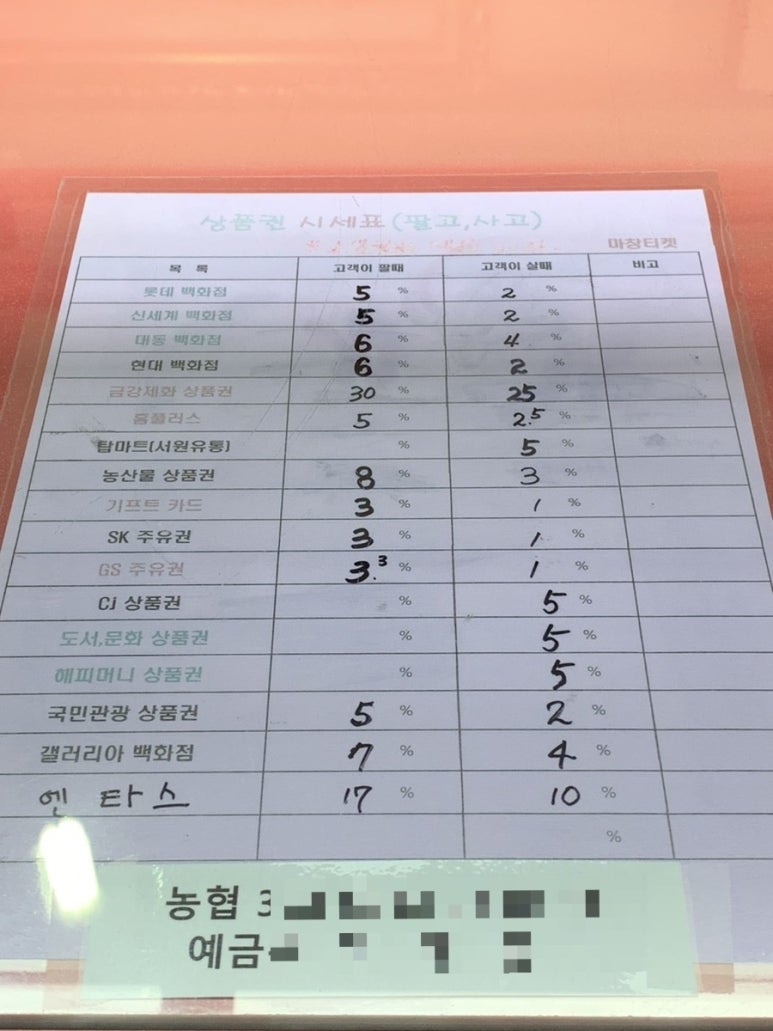 상품권 시세표(팔고,사고)
마창티켓
목 록 고객이 팔때 고객이 살때 비고
롯데 백화점 5 % 2 %
신세계 백화점 5 % 2 %
대동 백화점 6 % 4 %
현대 백화점 6 % 2 %
금강제화 상품권 30 % 25 %
홈플러스 5 % 2.5 %
탑마트(서원유통) % 5 %
농산물 상품권 8 % 3 %
기프트 카드 3 % 1 %
SK 주유권 3 % 1 %
GS 주유권 3.3 % 1 %
Cj 상품권 % 5 %
도서,문화 상품권 % 5 %
해피머니 상품권 % 5 %
국민관광 상품권 5 % 2 %
갤러리아 백화점 7 % 4 %
엔 타스 17 % 10 %
%
농협 3
예금